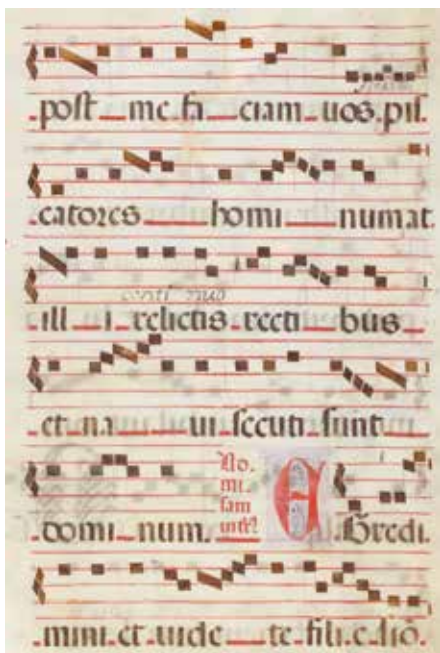 post me fa ciam uos pis
catores homi num at
ill i relictis recti bus
continuo
et na ui secuti sunt
domi num. E Gredi
mini et uide te fili e sio